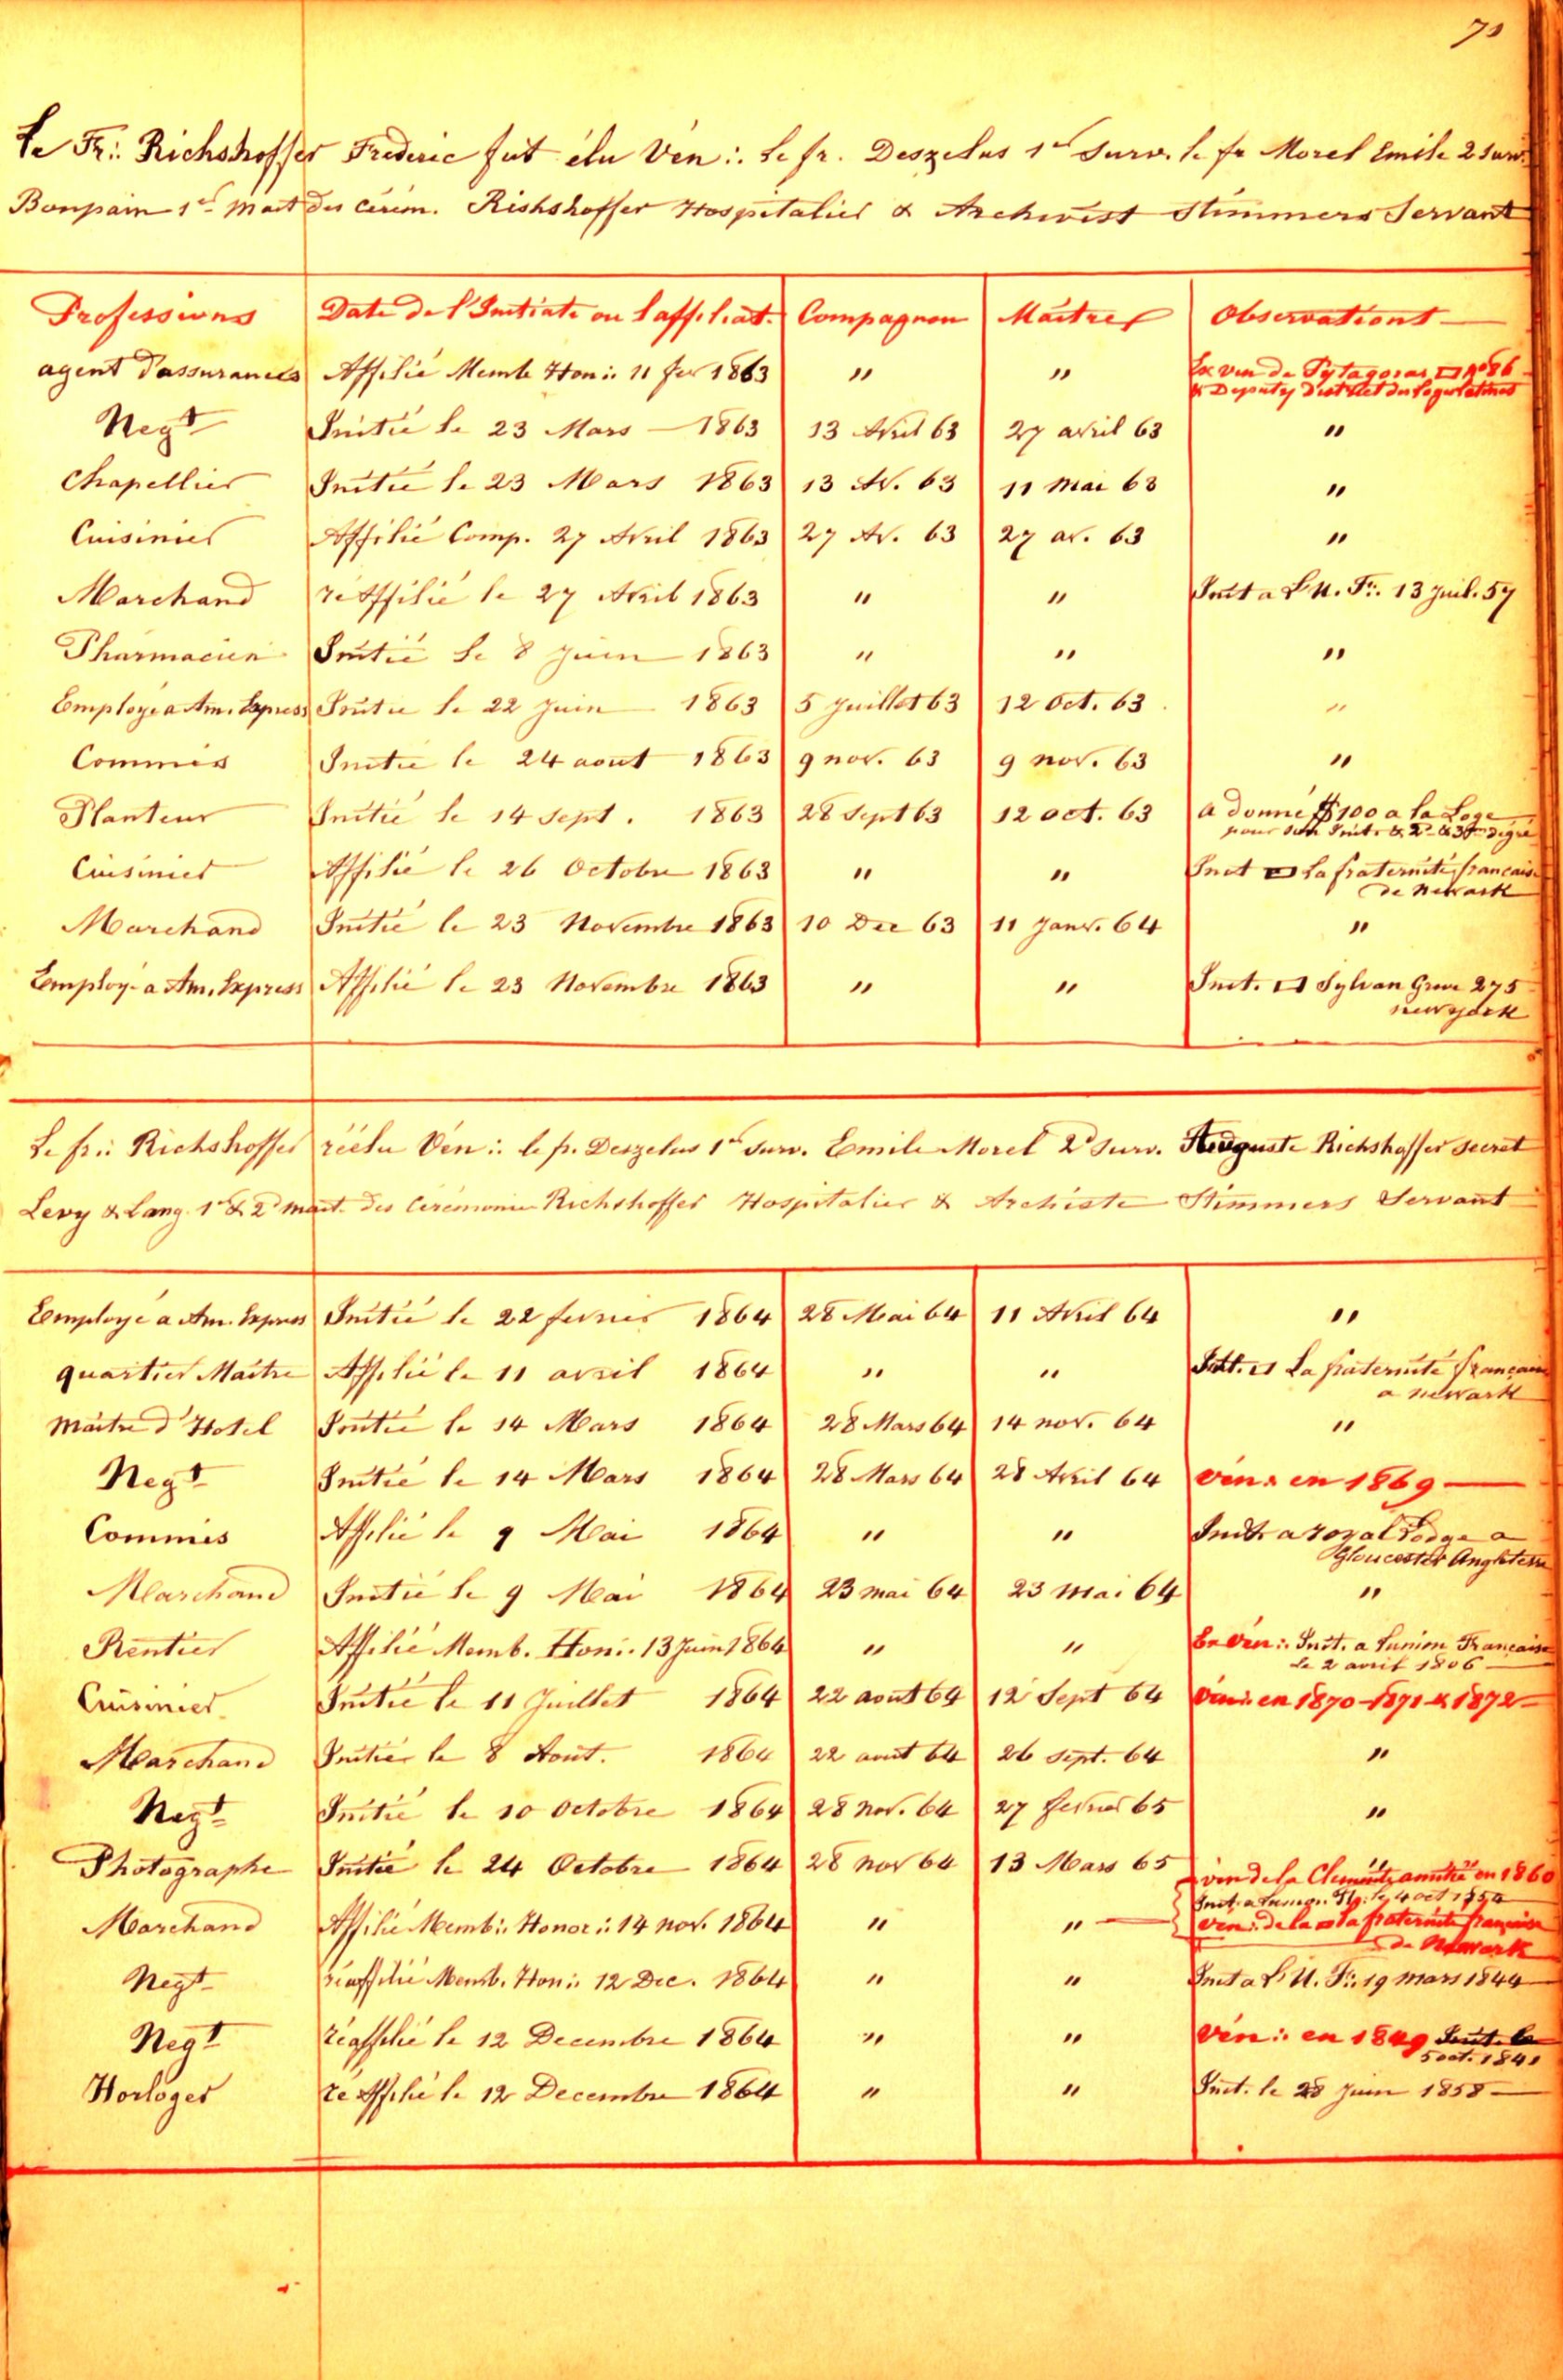 Le Fr∴ Richshoffer Frederic fut élu Vén∴ Le fr. Deszelus 1er Surv. le fr Morel Emile 2 Surv.
Bonpain 1er Mait des cérém. Rishshoffer Hospitalier & Archivist Stimmers Servant
Professions Date de l'Initiate ou l'affiliat. Compagnon Maitres Observations
agent d'assurances Affilié Memb Hon∴ 11 fev 1863 " " Ex ven de Pytagoras □ No 86
& Deputy Dist
Negt Initié le 23 Mars — 1863 13 Avril 63 27 avril 63 "
Chapellier Initié le 23 Mars 1863 13 Av. 63 11 Mai 63 "
Cuisinier Affilié Comp. 27 Avril 1863 27 Av. 63 27 av. 63 "
Marchand réaffilié le 27 Avril 1863 " " Init a L'U. F∴ 13 Juil. 57
Pharmacien Initié Le 8 Juin 1863 " " "
Employé a Am. Express Initié le 22 Juin 1863 5 Juillet 63 12 Oct. 63 "
Commis Initié le 24 aout 1863 9 nov. 63 9 nov. 63 "
Planteur Initié le 14 Sept. 1863 28 Sept 63 12 oct. 63 a donné $100 a la Loge
pour son Init. & 2d & 3me degré
Cuisinier Affilié le 26 Octobre 1863 " " Init □ La fraternité francaise
de Newark
Marchand Initié le 23 Novembre 1863 10 Dec 63 11 Janv. 64 "
Employé a Am. Express Affilié le 23 Novembre 1863 " " Init. □ Sylvan Grove 275
newyork
Le fr∴ Richshoffer réélu Vén∴ le fr. Deszelus 1er Surv. Emile Morel 2d Surv. Auguste Richshoffer Secret
Levy & Lang 1er & 2d mait. des Cérémonie Richshoffer Hospitalier & Archiste Stimmers Servant
Employé a Am. Express Initié le 22 fevrier 1864 28 Mai 64 11 Avril 64 "
quartier Maitre Affilié le 11 avril 1864 " " Init. □ La fraternité francaise
a newark
Maitre d'Hotel Initié le 14 Mars 1864 28 Mars 64 14 nov. 64 "
Negt Initié le 14 Mars 1864 28 Mars 64 28 Avril 64 Vén∴ en 1869
Commis Affilié le 9 Mai 1864 " " Init. a royal Lodge a
Gloucester Angleterre
Marchand Initié le 9 Mai 1864 23 mai 64 23 Mai 64 "
Rentier Affilié Memb. Hon∴ 13 Juin 1864 " " Ex Vén∴ Init. a Lunion Francaise
le 2 avril 1806
Cuisinier Initié le 11 Juillet 1864 22 aout 64 12 Sept 64 Vén∴ en 1870-1871 & 1872
Marchand Initié le 8 Aout. 1864 22 aout 64 26 Sept. 64 "
Negt Initié le 10 Octobre 1864 28 Nov. 64 27 fevrier 65 "
Photographe Initié le 24 Octobre 1864 28 nov 64 13 Mars 65 "
ven de la Clemente amitié en 1860
Init. a Lunion 4 oct 1850
Marchand Affilié Memb∴ Honor∴ 14 nov. 1864 " " ven∴ de la □ la fraternité française
de Newark
Negt réaffilié Memb. Hon∴ 12 Dec. 1864 " " Init a L'U. F∴ 19 mars 1844
Negt réaffilié le 12 Decembre 1864 " " Vén∴ en 1849 Init. le
5 oct. 1841
Horloger réaffilié le 12 Decembre 1864 " " Init. le 28 Juin 1858